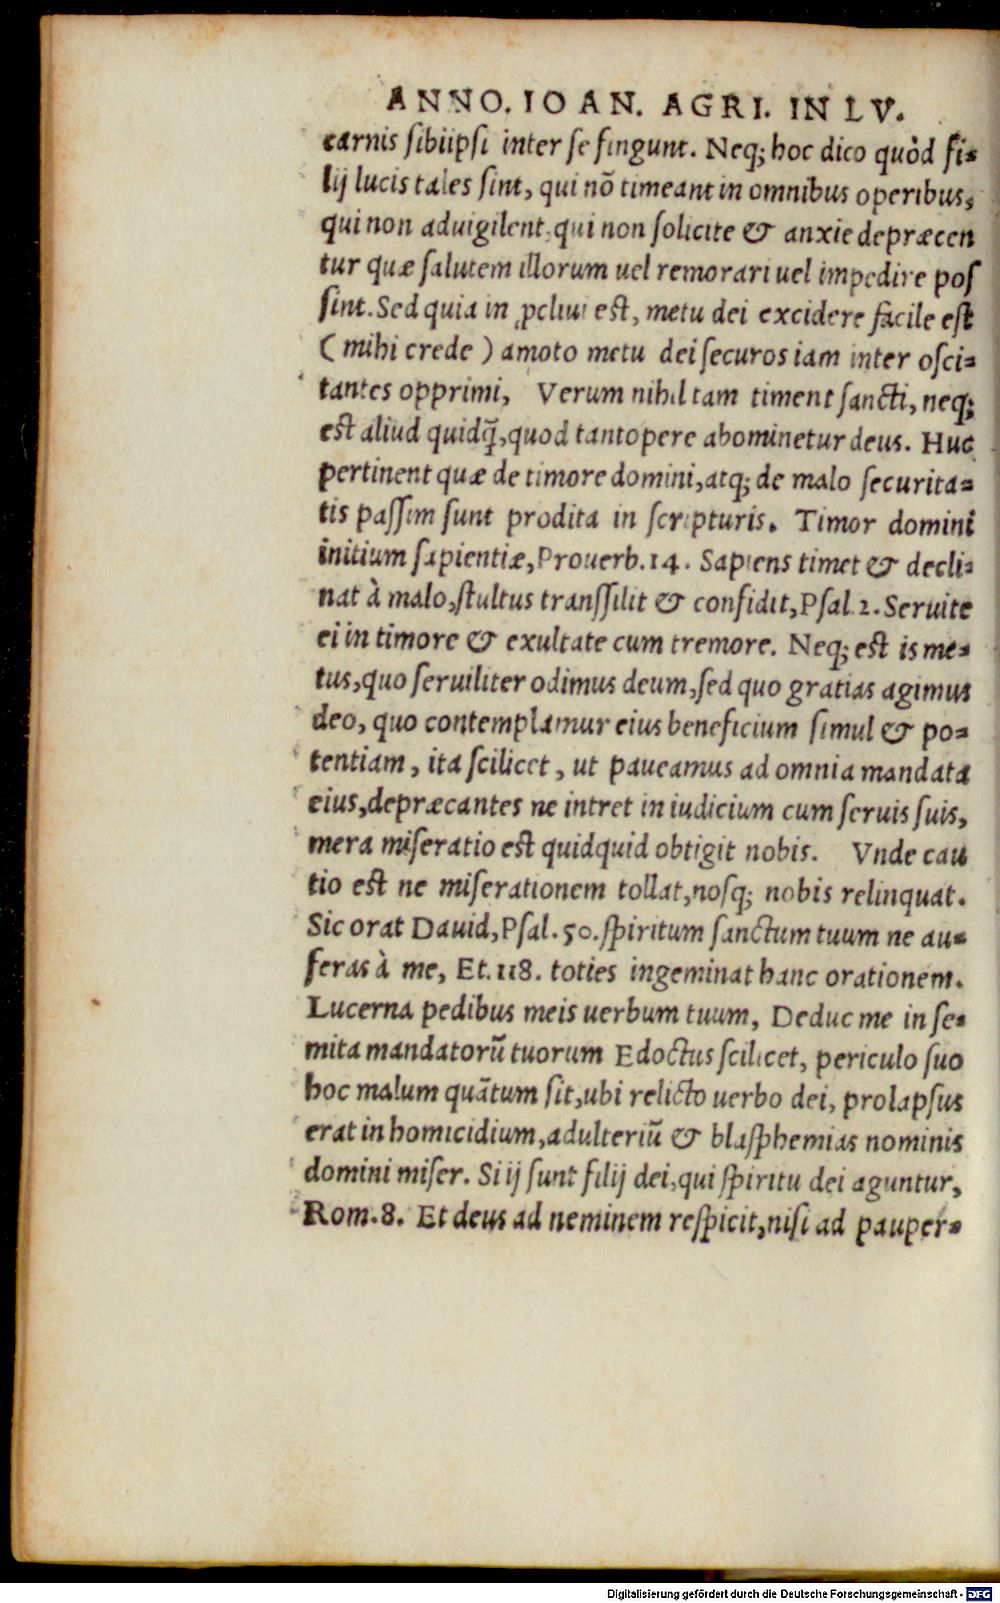 ANNO. IOAN. AGRI. IN LV.
carnis ſibiipſi inter ſe fingunt. Neq; hoc dico quòd fi-
lij lucis tales ſint, qui nõ timeant in omnibus operibus,
qui non aduigilent, qui non ſolicite & anxie depræcen
tur quæ ſalutem illorum uel remorari uel impedire poſ
ſint. Sed quia in ꝓcliui eſt, metu dei excidere facile eſt
( mihi crede ) amoto metu dei ſecuros iam inter oſci-
tantes opprimi, Verum nihil tam timent ſancti, neq;
eſt aliud quidq̃, quod tantopere abominetur deus. Huc
pertinent quæ de timore domini, atq; de malo ſecurita-
tis paſſim ſunt prodita in ſcripturis. Timor domini
initium ſapientiæ, Prouerb. 14. Sapiens timet & decli-
nat à malo, ſtultus tranſſilit & confidit, Pſal. 2. Seruite
ei in timore & exultate cum tremore. Neq; eſt is me-
tus, quo ſeruiliter odimus deum, ſed quo gratias agimus
deo, quo contemplamur eius beneficium ſimul & po-
tentiam, ita ſcilicet, ut paueamus ad omnia mandata
eius, depræcantes ne intret in iudicium cum ſeruis ſuis,
mera miſeratio eſt quidquid obtigit nobis. Vnde cau
tio eſt ne miſerationem tollat, noſq; nobis relinquat.
Sic orat Dauid, Pſal. 50. ſpiritum ſanctum tuum ne au-
feras à me, Et. 118. toties ingeminat hanc orationem.
Lucerna pedibus meis uerbum tuum, Deduc me in ſe-
mita mandatorũ tuorum Edoctus ſcilicet, periculo ſuo
hoc malum quãtum ſit, ubi relicto uerbo dei, prolapſus
erat in homicidium, adulteriũ & blaſphemias nominis
domini miſer. Si ij ſunt filij dei, qui ſpiritu dei aguntur,
Rom. 8. Et deus ad neminem reſpicit, niſi ad pauper-
Digitalisierung gefördert durch die Deutsche Forschungsgemeinschaft - DFG